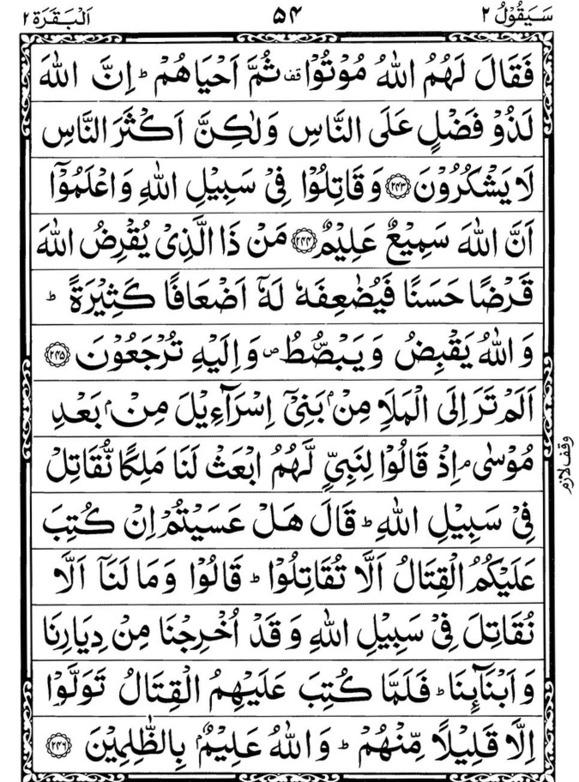 سَيَقُوْلُ ٢ ۵۴ اَلْبَقَرَة ٢
فَقَالَ لَهُمُ اللّٰهُ مُوْتُوْا قف ثُمَّ اَحْيَاهُمْ ؕ اِنَّ اللّٰهَ
لَذُوْ فَضْلٍ عَلَى النَّاسِ وَلٰكِنَّ اَكْثَرَ النَّاسِ
لَا يَشْكُرُوْنَ ﴿۲۴۳﴾ وَقَاتِلُوْا فِىْ سَبِيْلِ اللّٰهِ وَاعْلَمُوْۤا
اَنَّ اللّٰهَ سَمِيْعٌ عَلِيْمٌ ﴿۲۴۴﴾ مَنْ ذَا الَّذِىْ يُقْرِضُ اللّٰهَ
قَرْضًا حَسَنًا فَيُضٰعِفَهٗ لَهٗۤ اَضْعَافًا كَثِيْرَةً ؕ
وَاللّٰهُ يَقْبِضُ وَيَبْصُۜطُ ص وَاِلَيْهِ تُرْجَعُوْنَ ﴿۲۴۵﴾
اَلَمْ تَرَ اِلَى الْمَلَاِ مِنْۢ بَنِىْۤ اِسْرَآءِيْلَ مِنْۢ بَعْدِ
مُوْسٰى ۘ اِذْ قَالُوْا لِنَبِىٍّ لَّهُمُ ابْعَثْ لَنَا مَلِكًا نُّقَاتِلْ
وقف لازم
فِىْ سَبِيْلِ اللّٰهِ ؕ قَالَ هَلْ عَسَيْتُمْ اِنْ كُتِبَ
عَلَيْكُمُ الْقِتَالُ اَلَّا تُقَاتِلُوْا ؕ قَالُوْا وَمَا لَنَاۤ اَلَّا
نُقَاتِلَ فِىْ سَبِيْلِ اللّٰهِ وَقَدْ اُخْرِجْنَا مِنْ دِيَارِنَا
وَاَبْنَآئِنَا ؕ فَلَمَّا كُتِبَ عَلَيْهِمُ الْقِتَالُ تَوَلَّوْا
اِلَّا قَلِيْلًا مِّنْهُمْ ؕ وَاللّٰهُ عَلِيْمٌۢ بِالظّٰلِمِيْنَ ﴿۲۴۶﴾